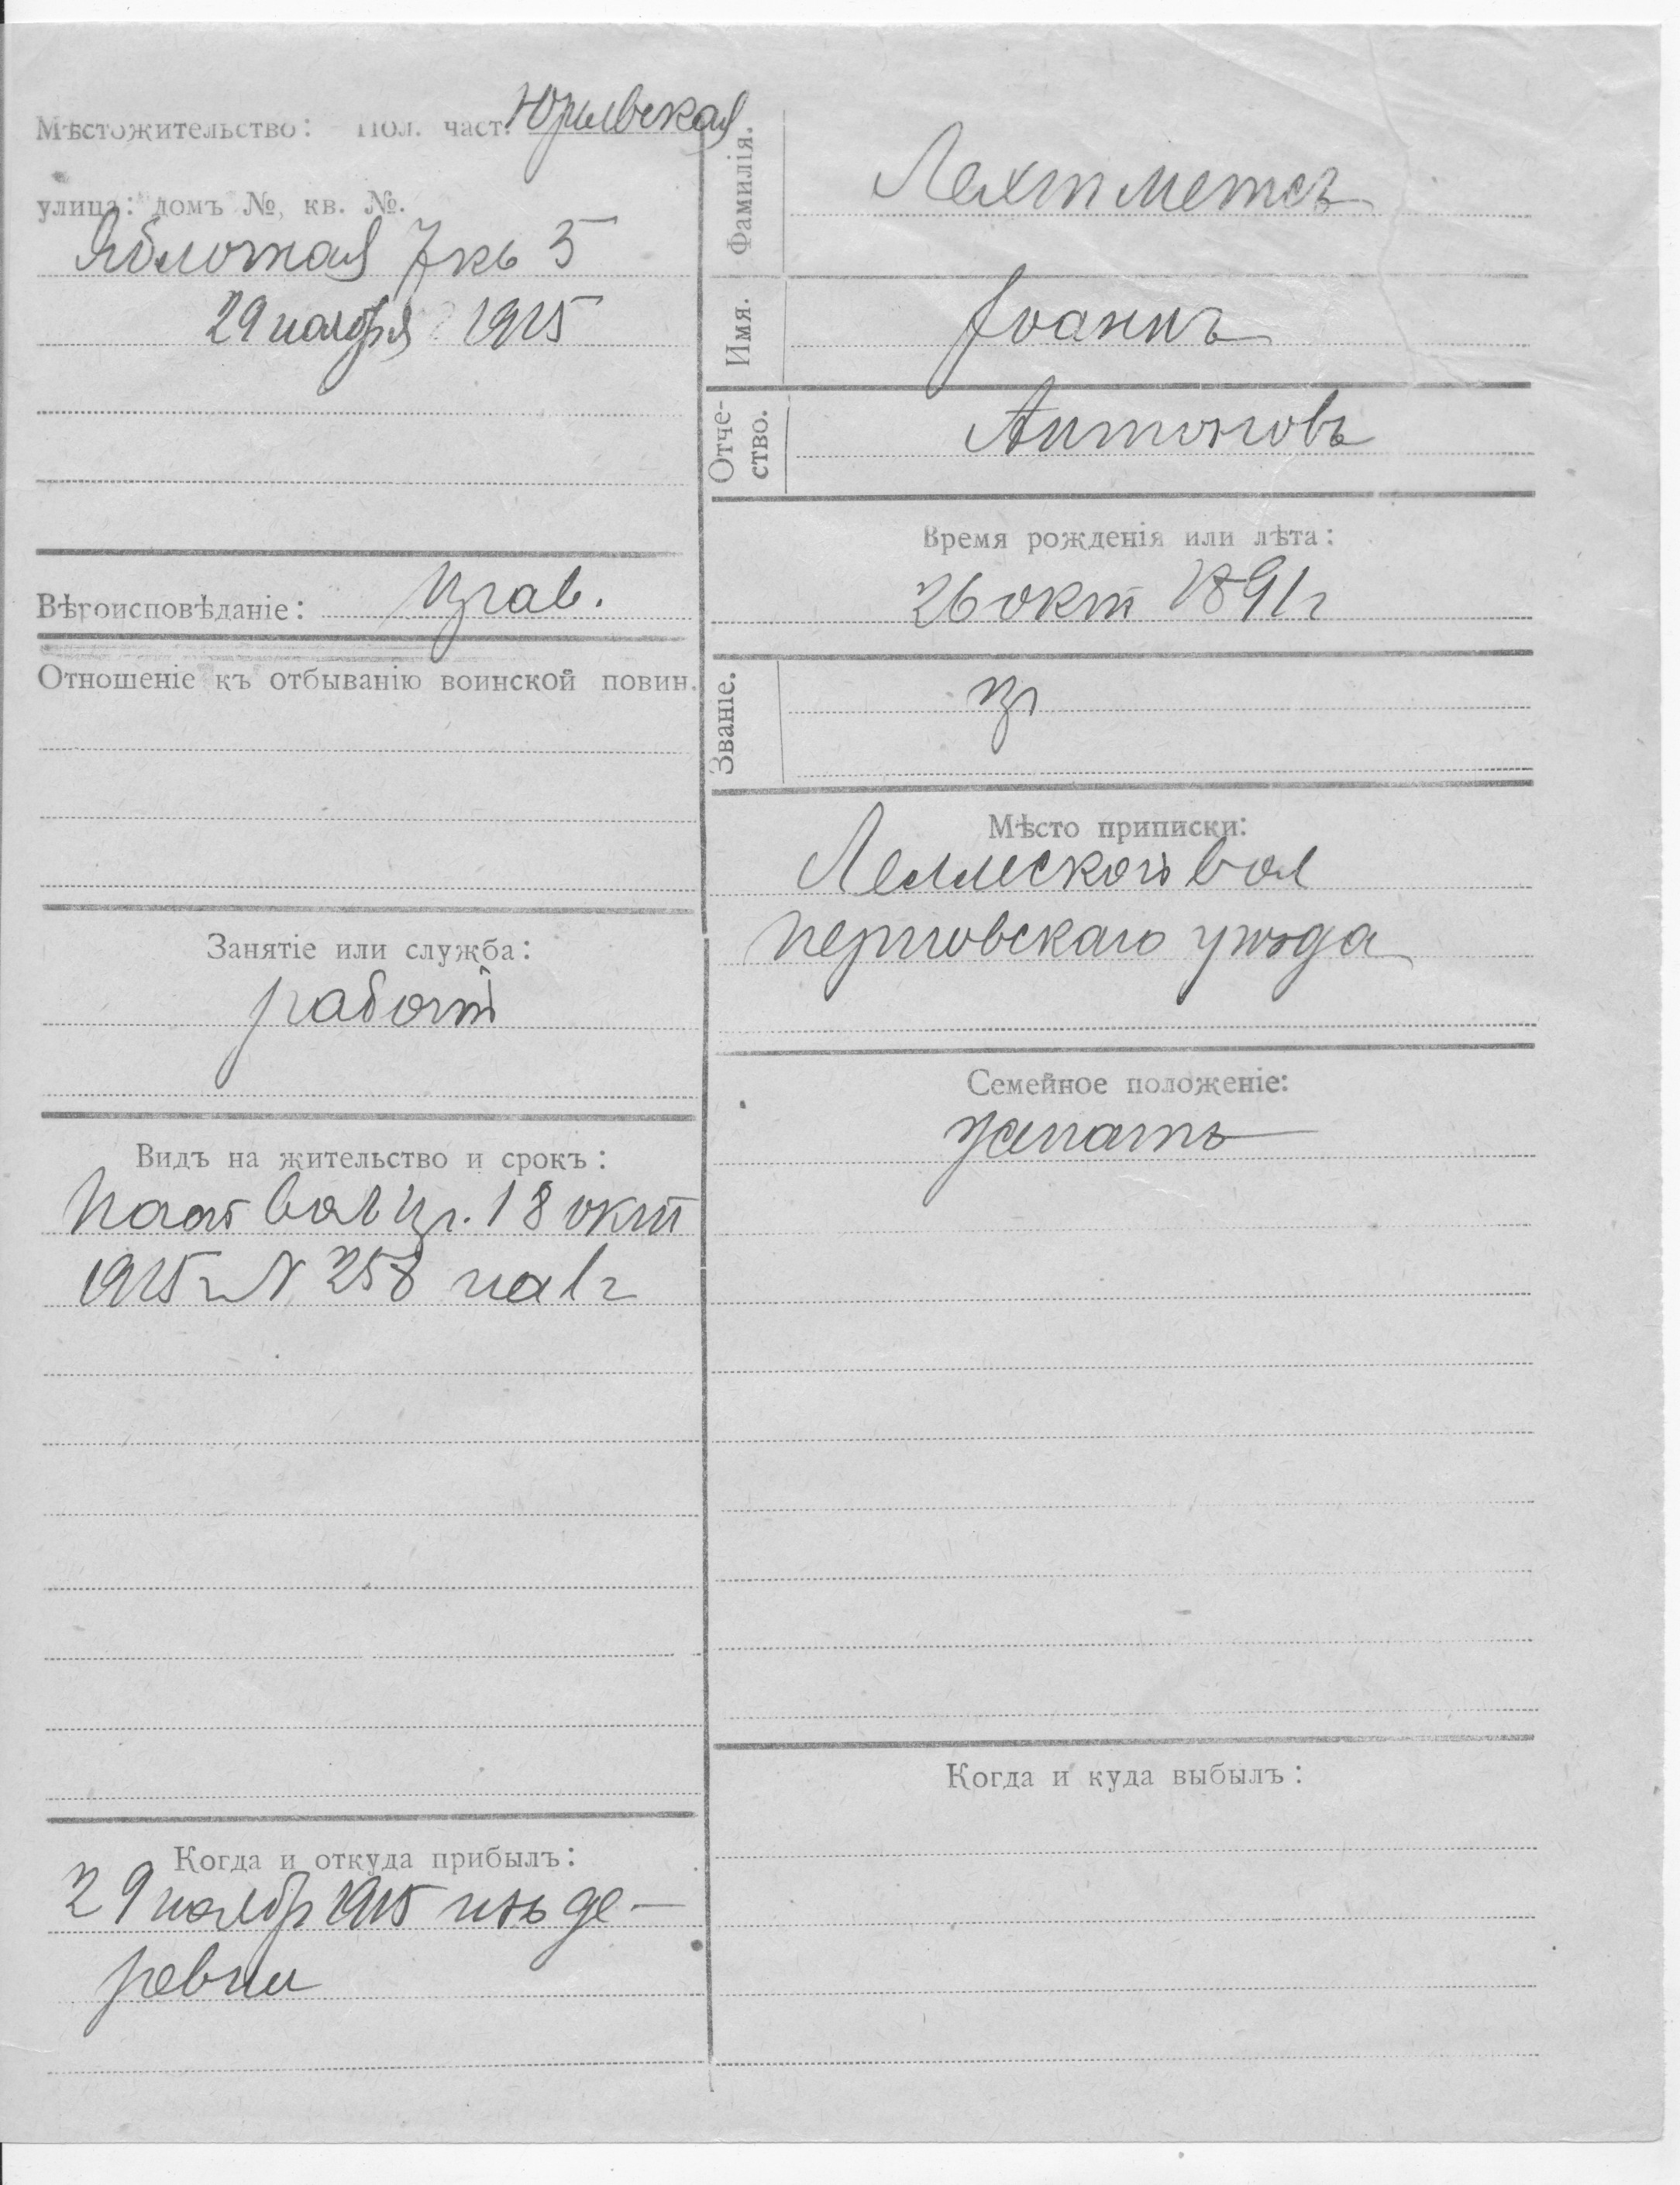 Мѣстожительство: Пол. част. Юрьевская
улица: домъ №, кв. №.
Яблочная 7 кв 5
29 ноября 1915
Вѣроисповѣданіе: прав.
Отношеніе къ отбыванію воинской повин.
Занятіе или служба:
работ
Видъ на жительство и срокъ:
вол пр. 18 окт
1915 г N 258 на 1 г
Когда и откуда прибылъ:
29 ноябр 1915 изъ де-
ревни
Фамилія. Лехтметсъ
Имя. Іоаннъ
Отче-
ство. Антоновъ
Время рожденія или лѣта:
26 окт 1891 г
Званіе. кр
Мѣсто приписки:
Леллеской вол
Перновскаго уѣзда
Семейное положеніе:
женатъ
Когда и куда выбылъ: